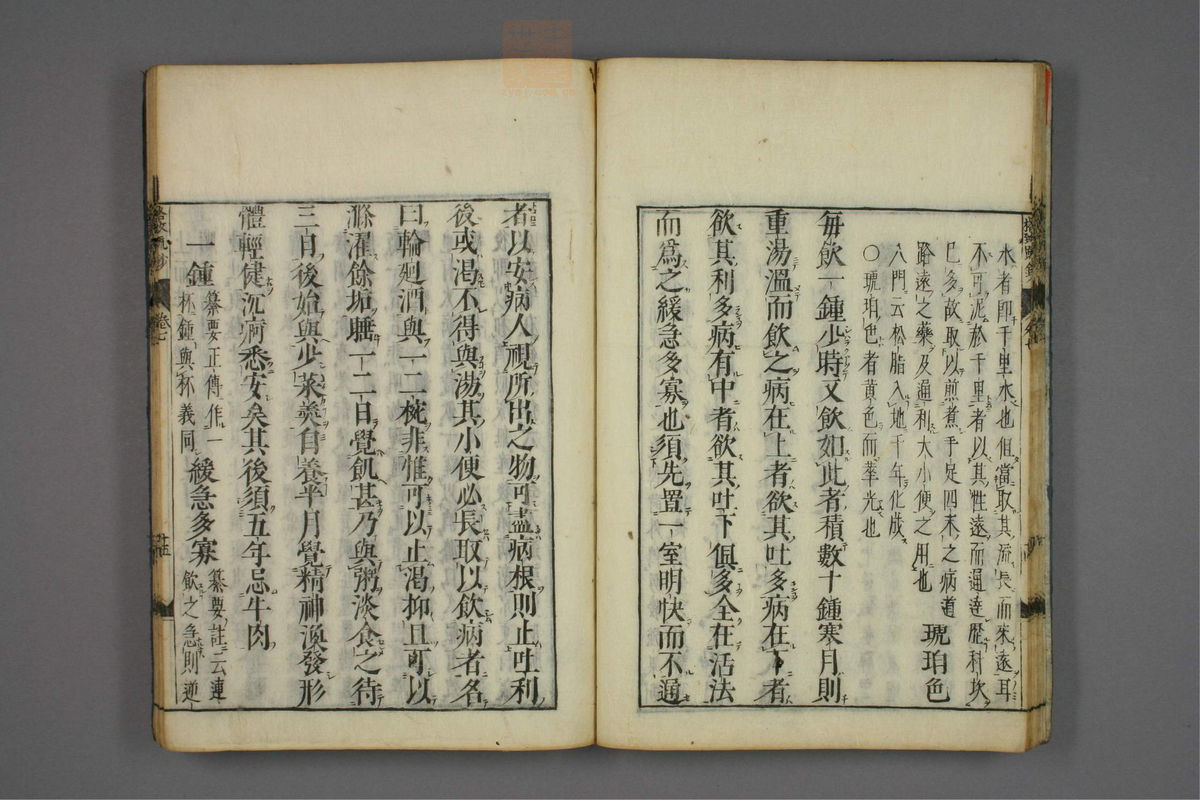 水者即千里水也但當取其流長而來遠耳
不可泥於千里者以其性遠而通達歷科坎
已多故取以煎煮手足四末之病道
路遠之藥及通利大小便之用也
琥珀色
入門云松脂入地千年化成
〇琥珀色者黄色而華光也
每飲一鍾少時又飲如此者積數十鍾寒月則
重湯溫而飲之病在上者欲其吐多病在下者
欲其利多病有中者欲其吐下俱多全在活法
而爲之緩急多寡也須先置一室明快而不通
者以安病人視所出之物可盡病根則止吐利
後或渴不得與湯其小便必長取以飲病者名
曰輪廻酒與一二椀非惟可以止渴抑且可以
滌濯餘垢睡一二日覺飢甚乃與粥淡食之待
三日後始與少菜羮自養半月覺精神渙發形
體輕健沉痾悉安矣其後須五年忌牛肉
一鍾
纂要正傳作一
杯鍾與杯義同
緩急多寡
纂要註云連
飲之急則逆
卷七